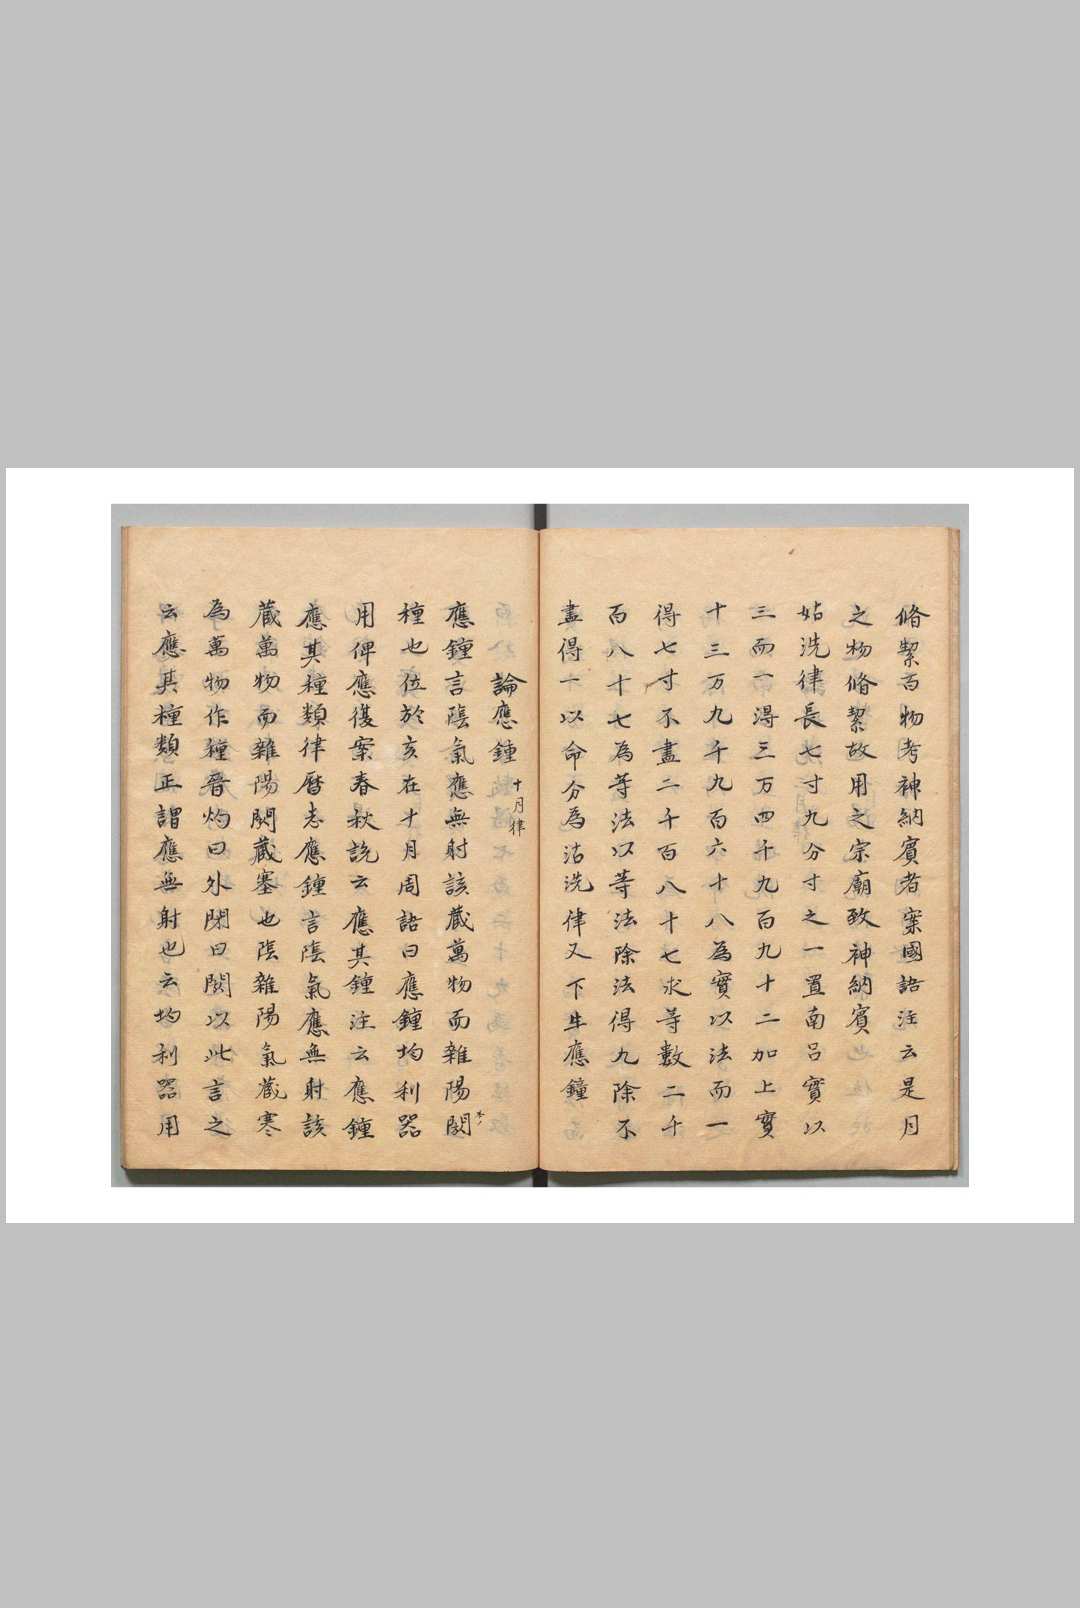 脩絜百物考神納賓者案國語注云是月
之物脩絜故用之宗廟致神納賓
姑洗律長七寸九分寸之一置南呂實以
三而一得三万四千九百九十二加上實
十三万九千九百六十八為實以法而一
得七寸不盡二千百八十七求等數二千
百八十七為等法以等法除法得九除不
盡得一以命分為沽洗律又下生應鐘
論應鍾 十月律
應鍾言陰氣應無射該蔵萬物而雜陽閡
種也位於亥在十月周語曰應鍾均利器
用俾應復案春秋說云應其鍾注云應鍾
應其種類律曆志應鍾言陰氣應無射該
蔵萬物而雜陽閡蔵塞也陰雜陽氣蔵塞
為萬物作種晉灼曰外閉曰閡以此言之
云應其種類正謂應無射也云均利器用